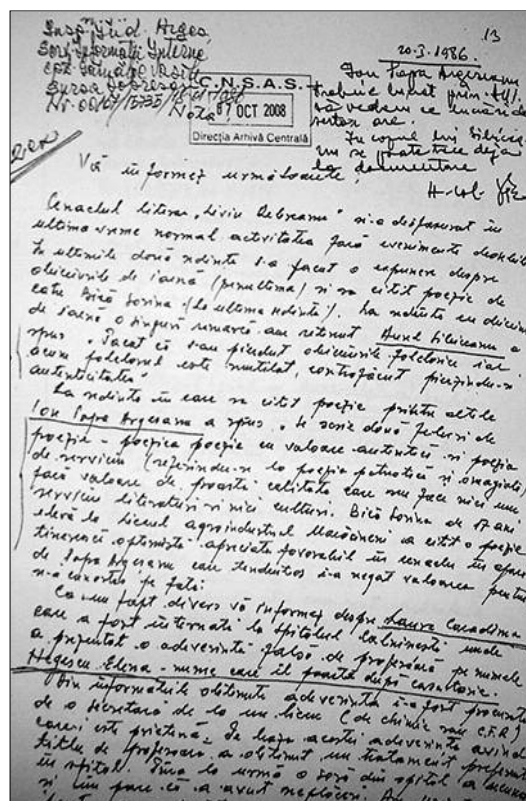 Insp. Jud. Argeș
Serv. Informații Interne
cpt. Vasile
Sursa
Nota
13
20.3.1986.
Ion Popa Argeșanu
trebuie lucrat prin
să vedem ce lucrări de
sertar are.
În cazul lui Sîlvia
nu se poate trece deja
la documentare
C.N.S.A.S.
07 OCT 2008
Direcția Arhivă Centrală
Vă informez următoarele:
Cenaclul literar „Liviu Rebreanu” și-a desfășurat în
ultima vreme normal activitatea fără evenimente deosebite
În ultimele două ședințe s-a făcut o expunere despre
obiceiurile de iarnă (penultima) și s-a citit poezie de
către Bică Sorina (la ultima ședință). La ședința cu obiceiuri
de iarnă o singură remarcă am reținut a
spus „Păcat că s-au pierdut obiceiurile folclorice iar
acum folclorul este mutilat, contrafăcut pierzîndu-și
autenticitatea”
La ședința în care s-a citit poezie printre altele
Ion Popa Argeșanu a spus „se scrie două feluri de
poezie - poezie cu valoare autentică și poezia
de serviciu (referindu-se la poezia patriotică și omagială)
fără valoare de proastă calitate care nu face nici un
serviciu literaturii și nici culturii. Bică Sorina de 17 ani
elevă la liceul agroindustrial a citit o poezie
tinerească optimistă apreciată favorabil în cenaclu în afară
de Popa Argeșanu care tendențios i-a negat valoarea pentru
pe față.
Ca un fapt divers vă informez despre Laura
care a fost internată la spitalul unde
a prezentat o adeverință falsă de profesoară pe numele
Negescu Elena - nume care îl poartă după căsătorie.
Din informațiile obținute adeverința i-a fost procurată
de o secretară de la un liceu (de chimie sau C.F.R.)
care-i este prietenă. Pe baza acestei adeverințe avînd
titlu de profesoară a obținut un tratament preferențial
în spital. Pînă la urmă o soră din spital a
și îmi pare că a avut neplăceri.